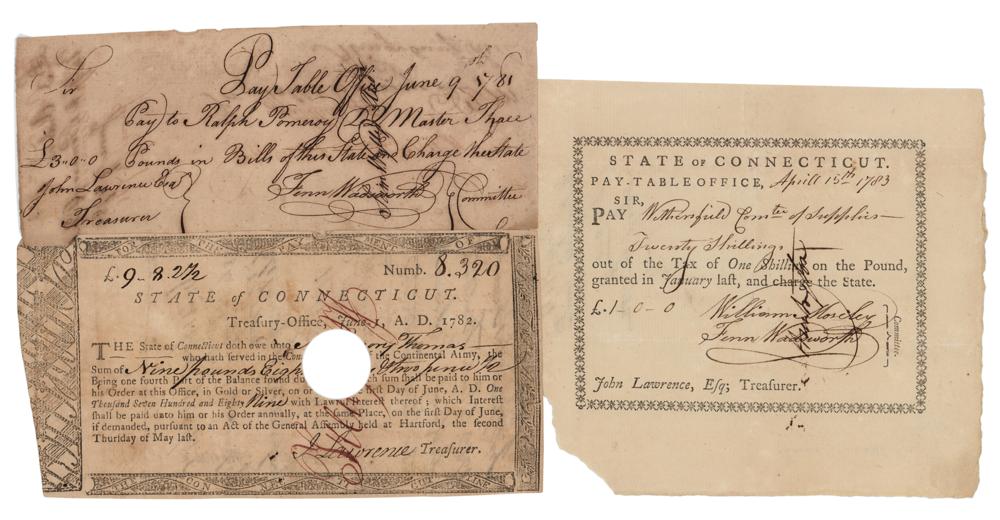 Sir
Pay Table Office June 9th 1781
Pay to Ralph Pomeroy Master Three
£3-0-0 Pounds in Bills of this State and Charge the State
John Lawrence Esqr
Treasurer
Fenn Wadsworth
Committee
FOR THE PAYMENT OF
£9-8.2½ Numb. 8.320
STATE of CONNECTICUT.
Treasury-Office, June 1, A. D. 1782.
THE State of Connecticut doth owe unto Thomas
who hath served in the Continental Army, the
Sum of Nine pounds Eight two pence ½
Being one fourth Part of the Balance found which Sum shall be paid to him or
his Order at this Office, in Gold or Silver, on or First Day of June, A. D. One
Thousand Seven Hundred and Eighty Nine with Lawful Interest thereof; which Interest
shall be paid unto him or his Order annually, at the same Place, on the first Day of June,
if demanded, pursuant to an Act of the General Assembly held at Hartford, the second
Thursday of May last.
J Lawrence Treasurer.
STATE OF CONNECTICUT.
PAY-TABLE OFFICE, Aprill 15th 1783
SIR,
PAY Wethersfield Comtee of Supplies
Twenty Shillings
out of the Tax of One Shilling on the Pound,
granted in January last, and charge the State.
£.1-0-0 William Moseley
Fenn Wadsworth
Committee.
John Lawrence, Esq; Treasurer.